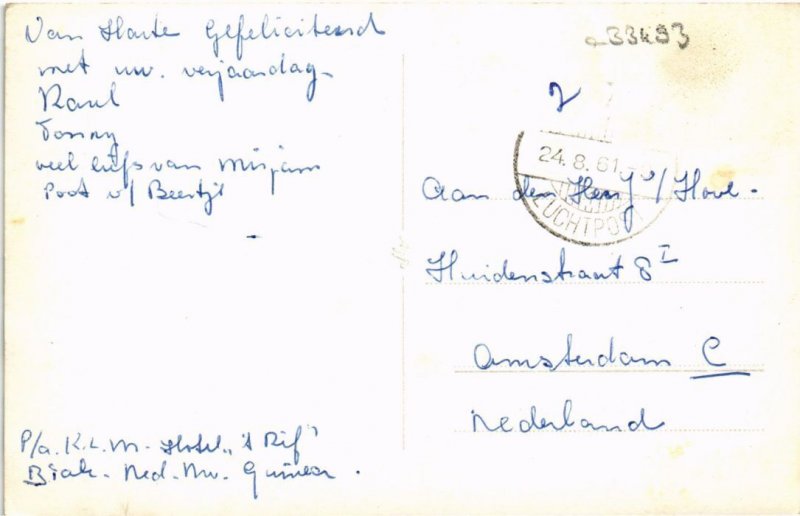 Van Harte Gefeliciteerd
met uw. verjaardag.
Karel
Tonny
veel liefs van Mirjam
Poot v/ Beertje
P/a. K.L.M. Hotel „'t Rif"
Biak. Ned. Nw. Guinea.
a33493
24.8.61
LUCHTPOST
Aan den Heer J v/ Hove.
Huidenstraat 8 I
Amsterdam C
Nederland